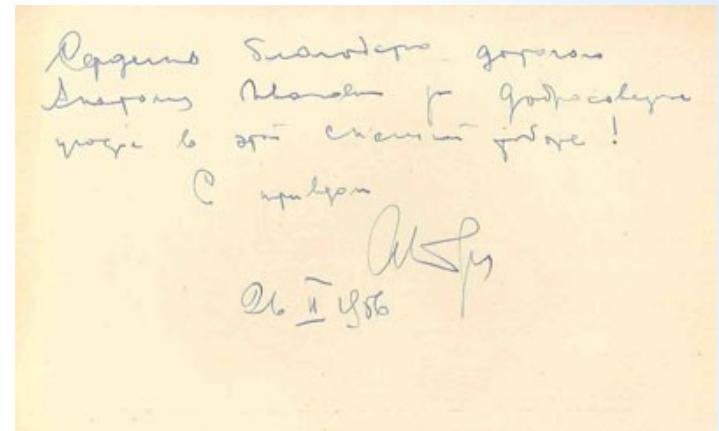 Сердечно благодарю дорогого
Анатолия Ивановича за добросовестное
участие в этой сложной работе!
С приветом
26 II 1956